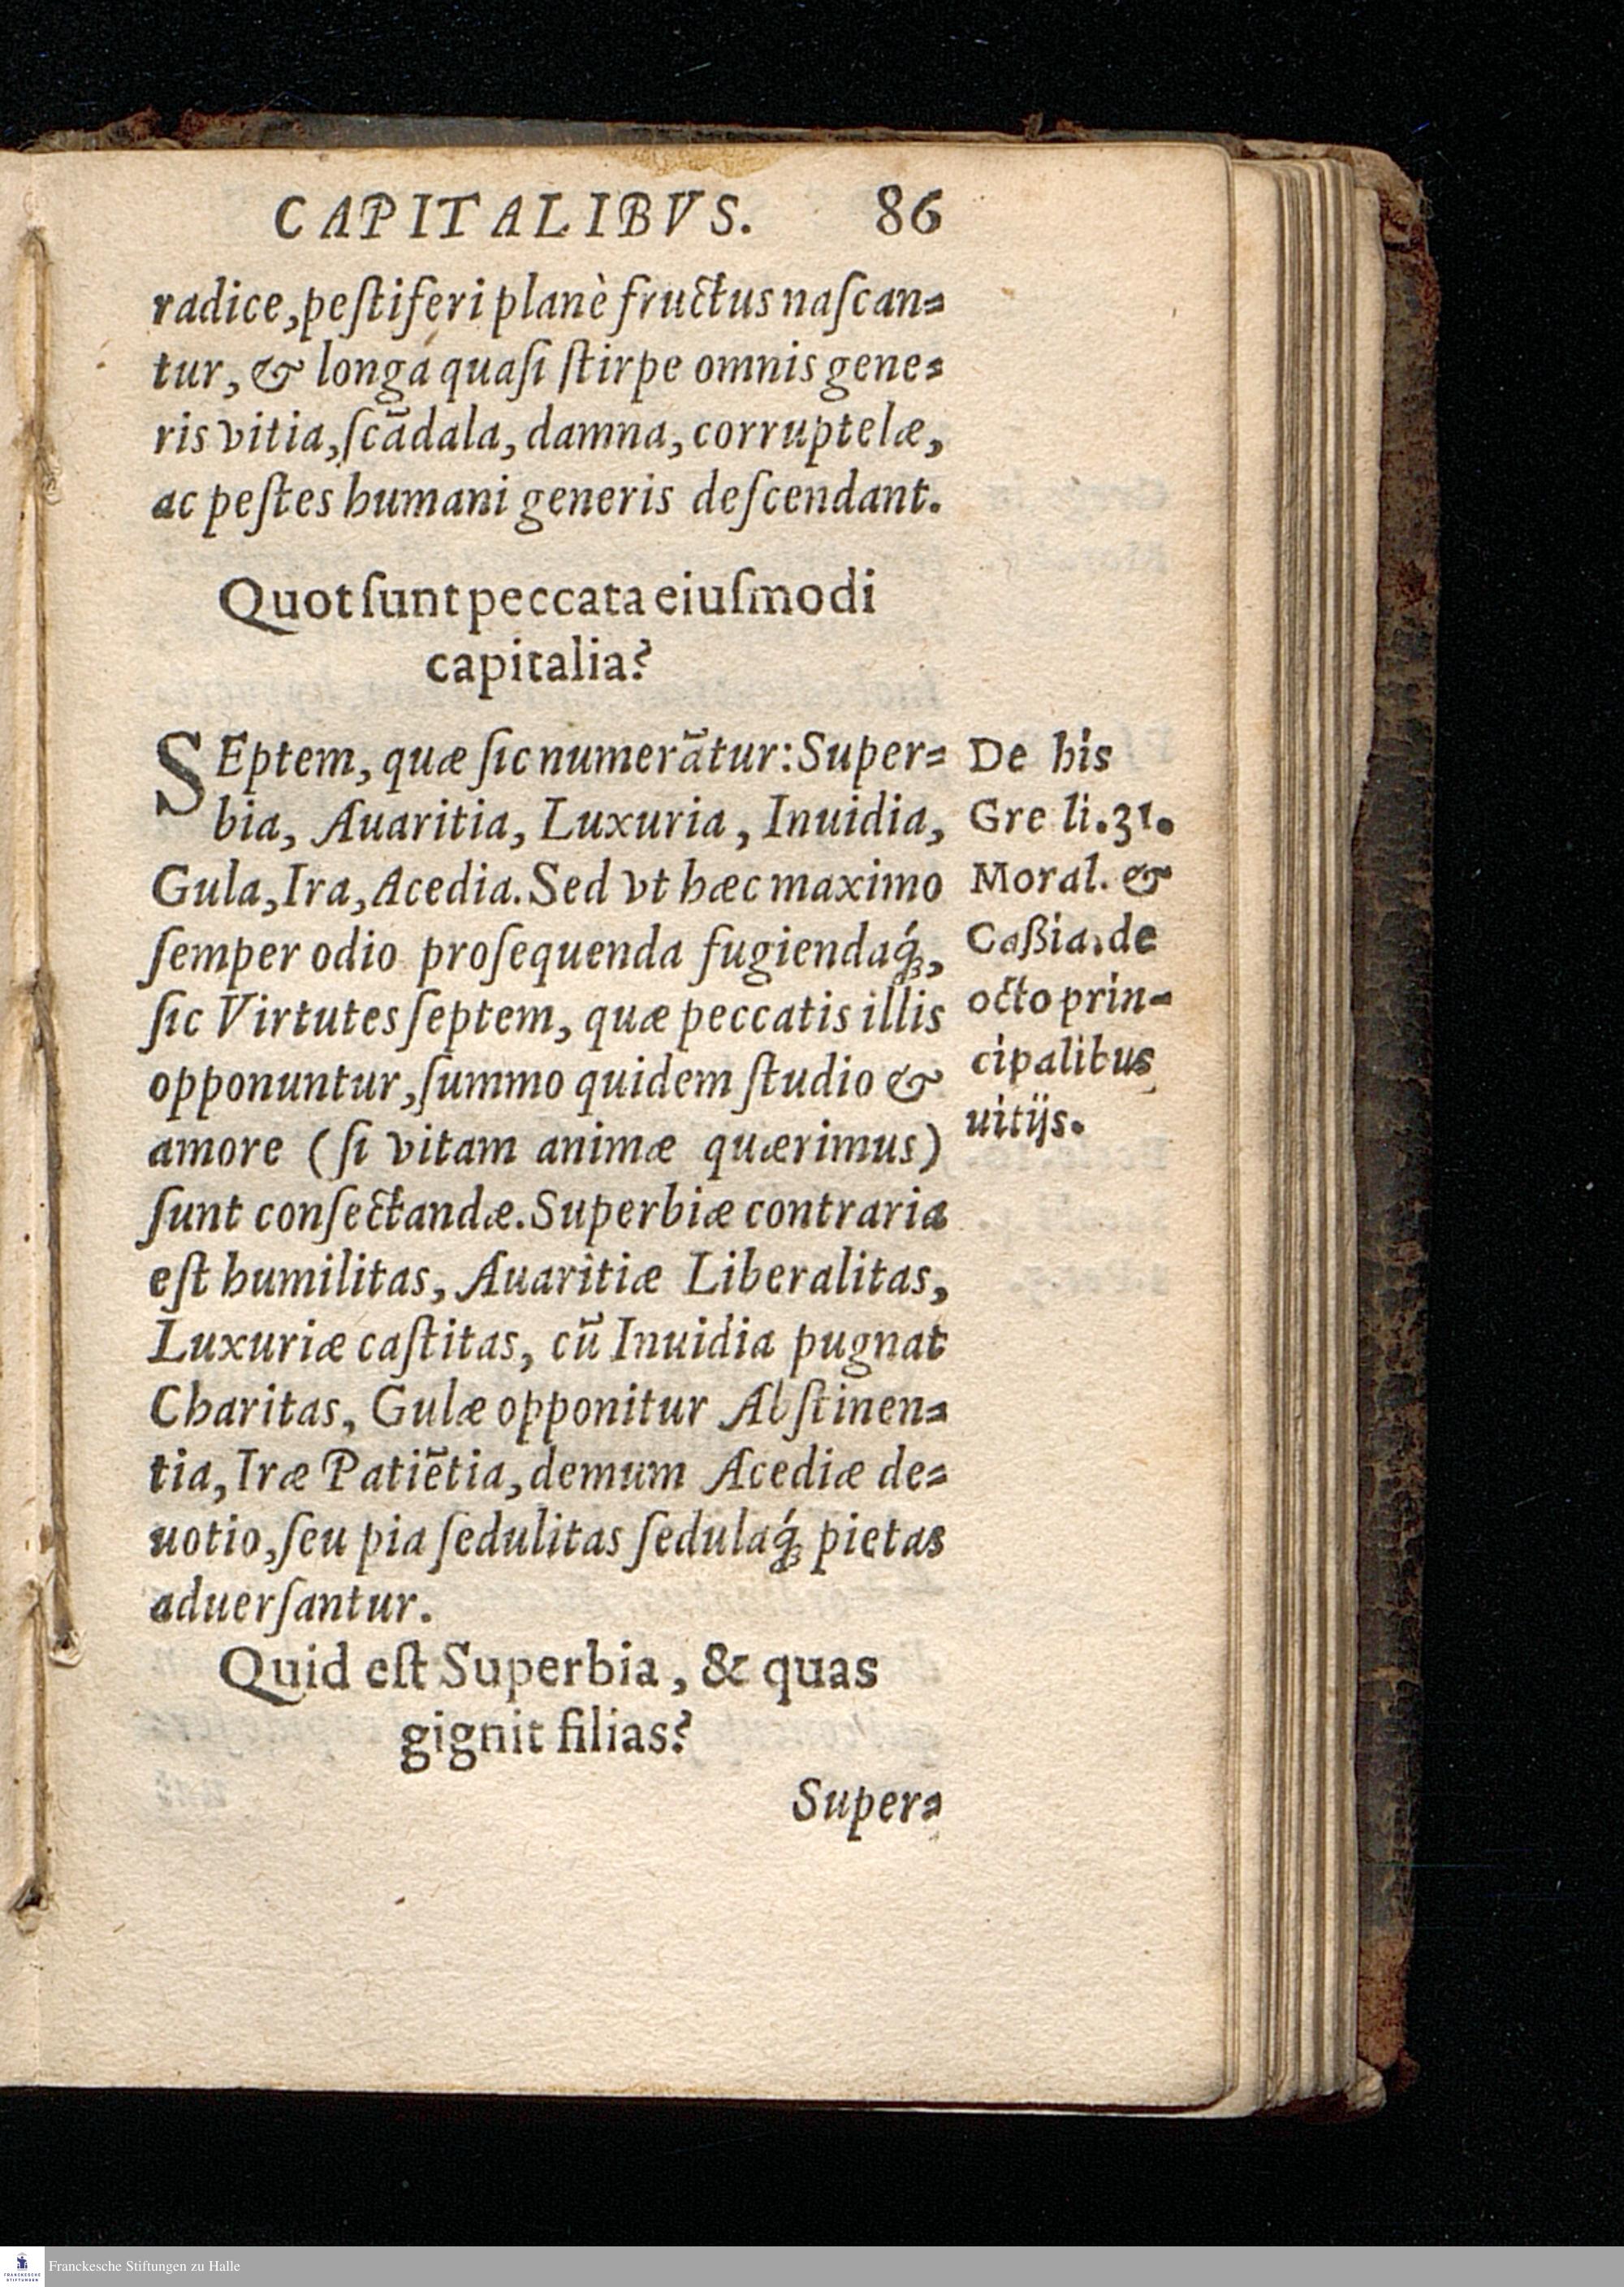 CAPITALIBVS. 86
radice, peſtiferi planè fructus naſcan-
tur, & longa quaſi ſtirpe omnis gene-
ris vitia, ſcādala, damna, corruptelæ,
ac peſtes humani generis deſcendant.
Quot ſunt peccata eiuſmodi
capitalia?
SEptem, quæ ſic numerātur: Super-
bia, Auaritia, Luxuria, Inuidia,
Gula, Ira, Acedia. Sed vt hæc maximo
ſemper odio proſequenda fugiendaq́;,
ſic Virtutes ſeptem, quæ peccatis illis
opponuntur, ſummo quidem ſtudio &
amore (ſi vitam animæ quærimus)
ſunt conſectandæ. Superbiæ contraria
eſt humilitas, Auaritiæ Liberalitas,
Luxuriæ caſtitas, cū Inuidia pugnat
Charitas, Gulæ opponitur Abſtinen-
tia, Iræ Patiētia, demum Acediæ de-
uotio, ſeu pia ſedulitas ſedulaq́; pietas
aduerſantur.
De his
Gre li.31.
Moral. &
Caßia. de
octo prin-
cipalibus
uitijs.
Quid eſt Superbia, & quas
gignit filias?
Super-
Franckesche Stiftungen zu Halle
FRANCKESCHE
STIFTUNGEN